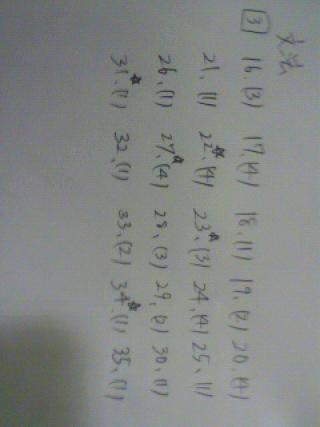 文法
[3] 16、(3) 17、(4) 18、(1) 19、(2) 20、(4)
21、(1) 22☆、(4) 23☆、(3) 24、(4) 25、(1)
26、(1) 27☆、(4) 28、(3) 29、(2) 30、(1)
31☆、(1) 32、(1) 33、(2) 34☆、(1) 35、(1)